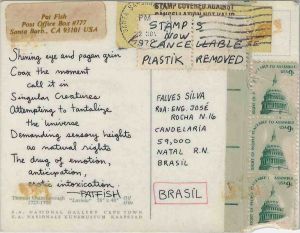 Pat Fish
Post Office Box #777
Santa Barb., CA 93101 USA
PM
1992
STAMP COVERED AGAINST
STAMPS
NOW
CANCELLABLE
PLASTIK REMOVED
Shining eye and pagan grin
Coax the moment
call it in
Singular Creatures
Attempting to tantalize
the universe
Demanding sensory heights
as natural rights
The drug of emotion,
anticipation,
erotic intoxication.
PATFISH
FALVES SILVA
RUA: ENG. JOSÉ
ROCHA N-16
CANDELARIA
59,000
NATAL R.N.
BRASIL
BRASIL
Thomas Gainsborough
1727-1788
S.A. NATIONAL GALLERY CAPE TOWN
S.A. NASIONALE KUNSMUSEUM KAAPSTAD